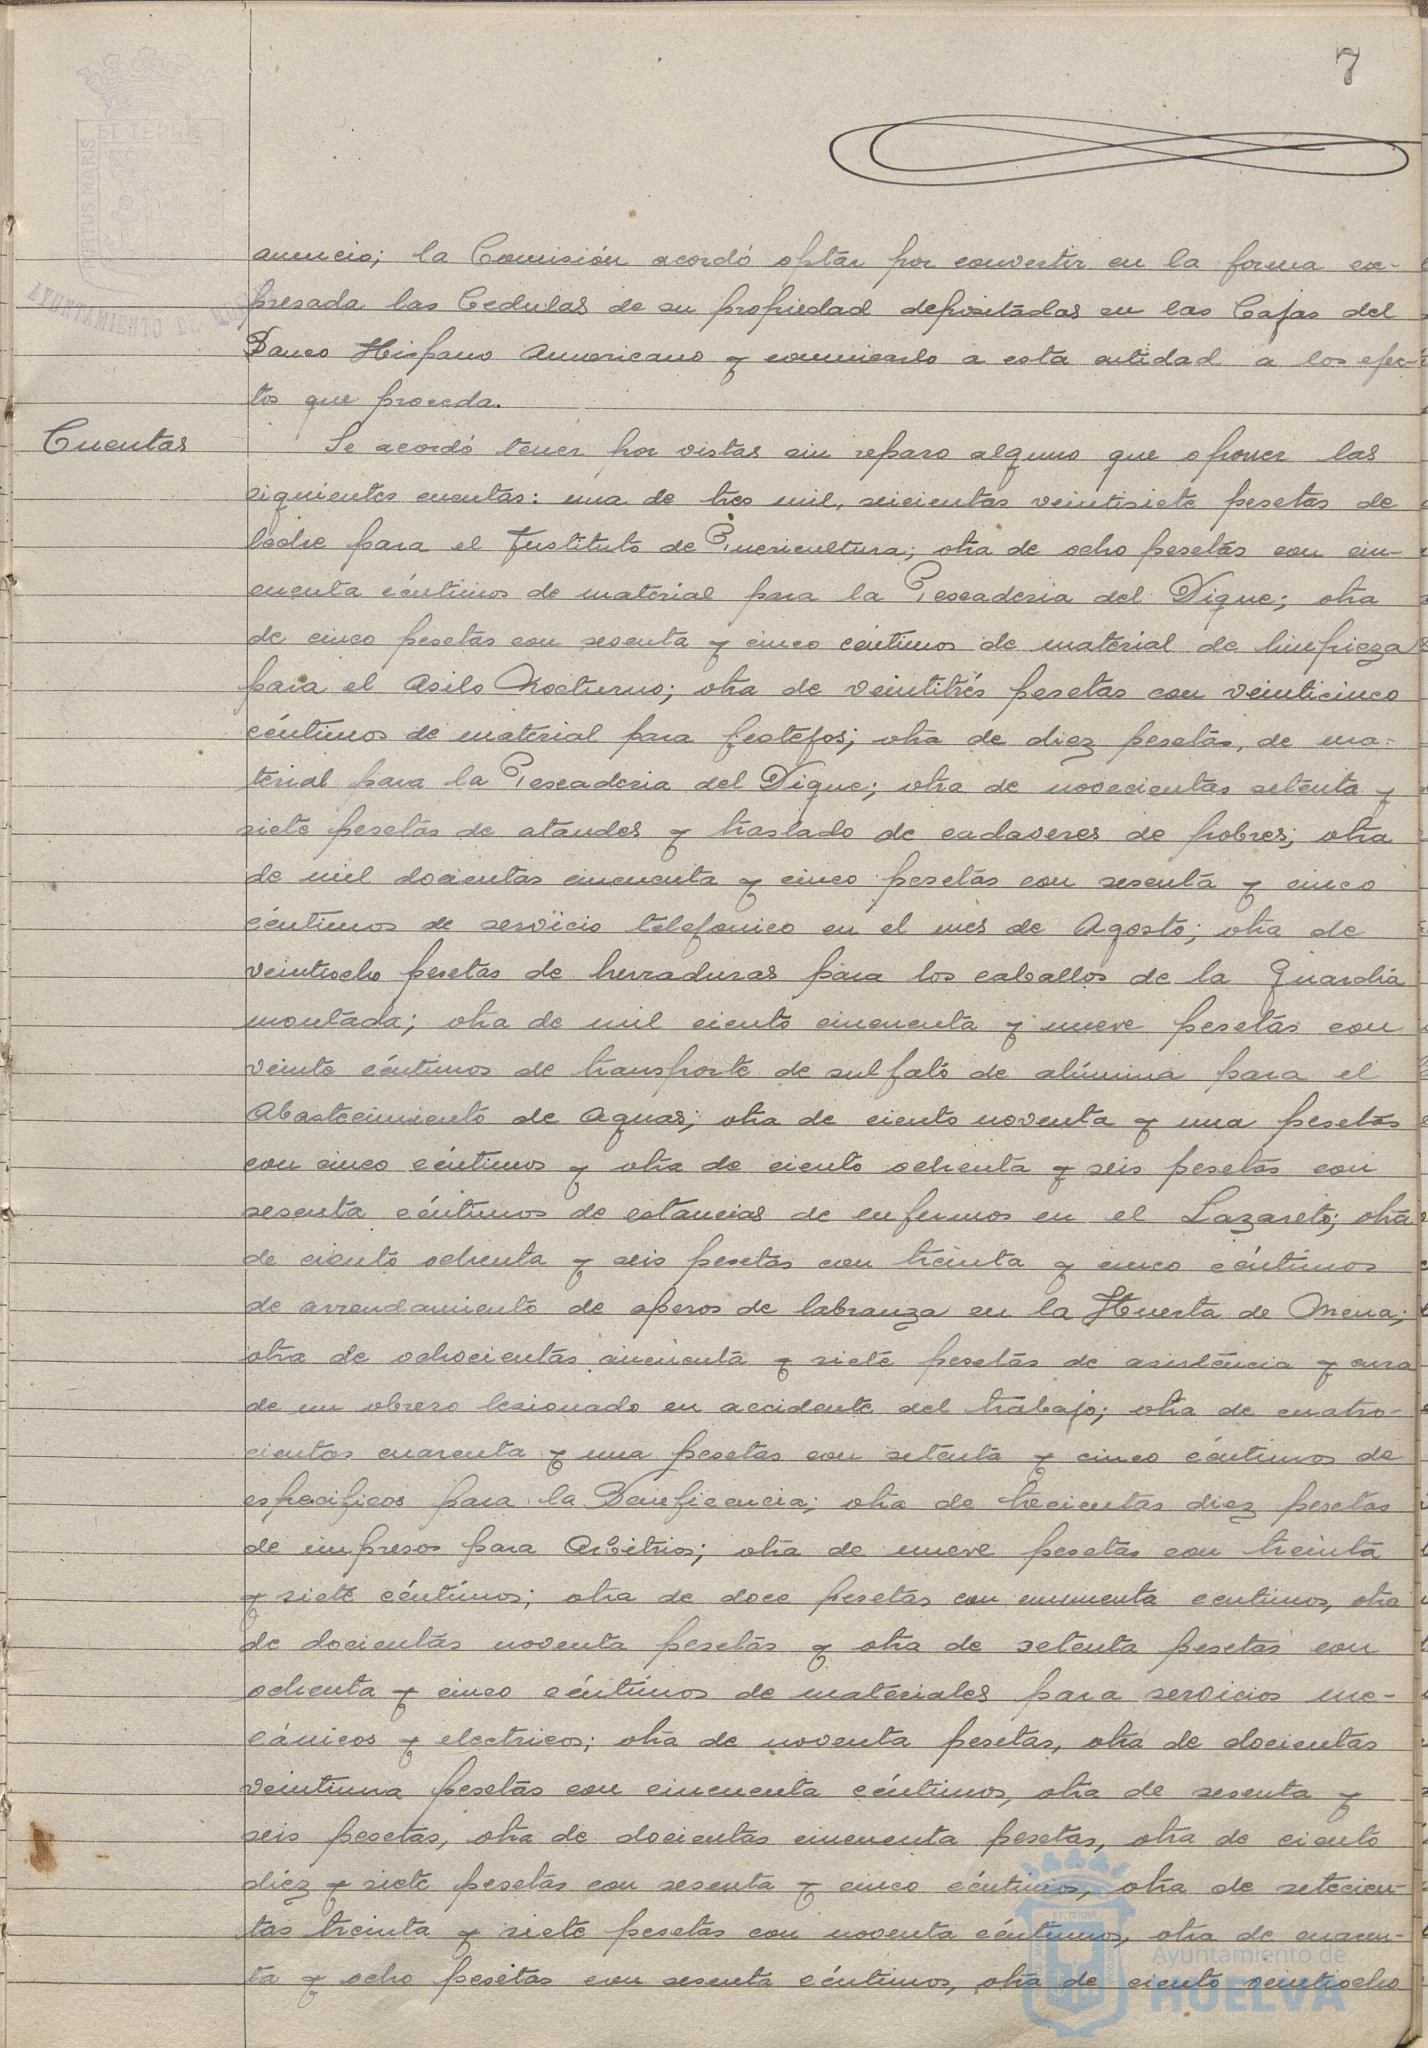 7
PORTUS MARIS
ET TERRÆ
AYUNTAMIENTO DE
anuncio; la Comisión acordó optar por convertir en la forma ex-
presada las Cedulas de su propiedad depositadas en las Cajas del
Banco Hispano Americano y comunicarlo a esta entidad a los efec-
tos que proceda.
Cuentas
Se acordó tener por vistas sin reparo alguno que oponer las
siguientes cuentas: una de tres mil, seicientas veintisiete pesetas de
leche para el Instituto de Puericultura; otra de ocho pesetas con cin-
cuenta céntimos de material para la Pescaderia del Dique; otra
de cinco pesetas con sesenta y cinco céntimos de material de limpieza
para el Asilo Nocturno; otra de veintitrés pesetas con veinticinco
céntimos de material para festejos; otra de diez pesetas, de ma-
terial para la Pescaderia del Dique; otra de novecientas setenta y
siete pesetas de ataudes y traslado de cadaveres de pobres; otra
de mil docientas cincuenta y cinco pesetas con sesenta y cinco
céntimos de servicio telefonico en el mes de Agosto; otra de
veintiocho pesetas de herraduras para los caballos de la Guardia
montada; otra de mil ciento cincuenta y nueve pesetas con
veinte céntimos de transporte de sulfato de alúmina para el
Abastecimiento de Aguas; otra de ciento noventa y una pesetas
con cinco céntimos y otra de ciento ochenta y seis pesetas con
sesenta céntimos de estancias de enfermos en el Lazareto; otra
de ciento ochenta y seis pesetas con treinta y cinco céntimos
de arrendamiento de aperos de labranza en la Huerta de Mena;
otra de ochocientas cincuenta y siete pesetas de asistencia y cura
de un obrero lesionado en accidente del trabajo; otra de cuatro-
cientas cuarenta y una pesetas con setenta y cinco céntimos de
especificos para la Beneficencia; otra de trecientas diez pesetas
de impresos para Arbitrios; otra de nueve pesetas con treinta
y siete céntimos; otra de doce pesetas con cincuenta centimos, otra
de docientas noventa pesetas y otra de setenta pesetas con
ochenta y cinco céntimos de materiales para servicios me-
cánicos y electricos; otra de noventa pesetas, otra de docientas
veintiuna pesetas con cincuenta céntimos, otra de sesenta y
seis pesetas, otra de docientas cincuenta pesetas, otra de ciento
diez y siete pesetas con sesenta y cinco céntimos, otra de setecien-
tas treinta y siete pesetas con noventa céntimos, otra de cuaren-
ta y ocho pesetas con sesenta céntimos, otra de ciento veintiocho
Ayuntamiento de
HUELVA